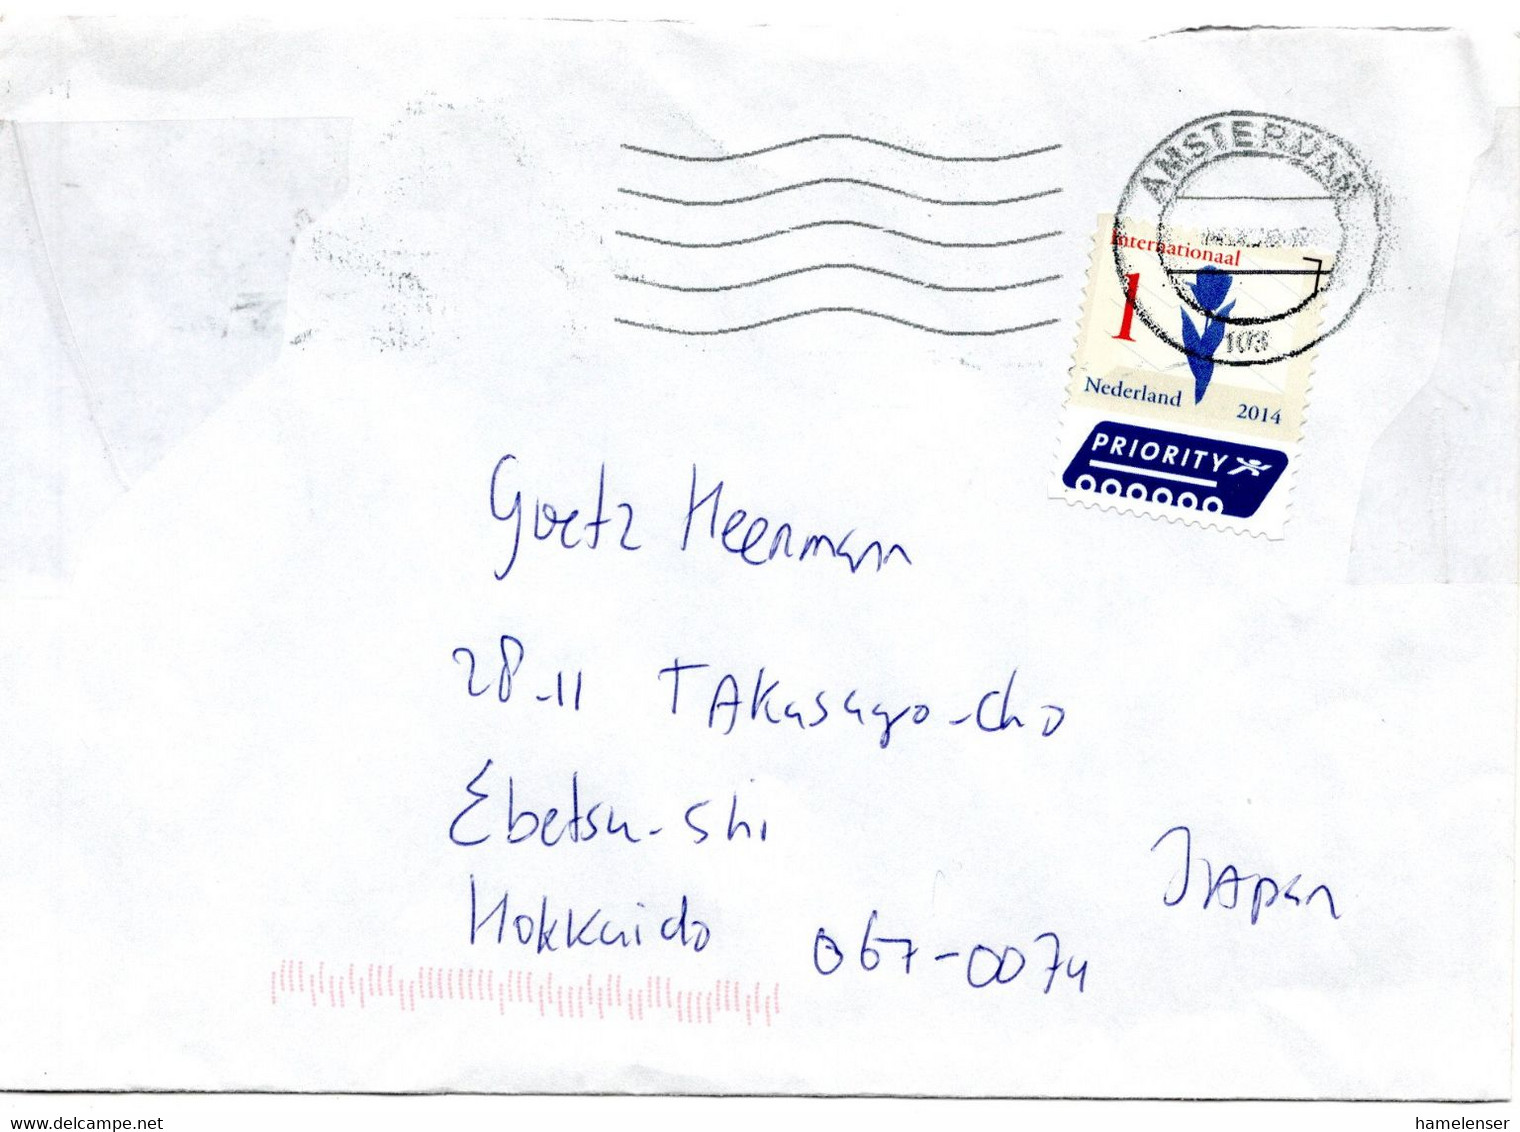 AMSTERDAM
103
Internationaal
1
Nederland
2014
PRIORITY
Goetz Heermann
28-11 TAKasago-cho
Ebetsu-shi
Hokkaido 067-0074
Japan
www.delcampe.net
hamelenser